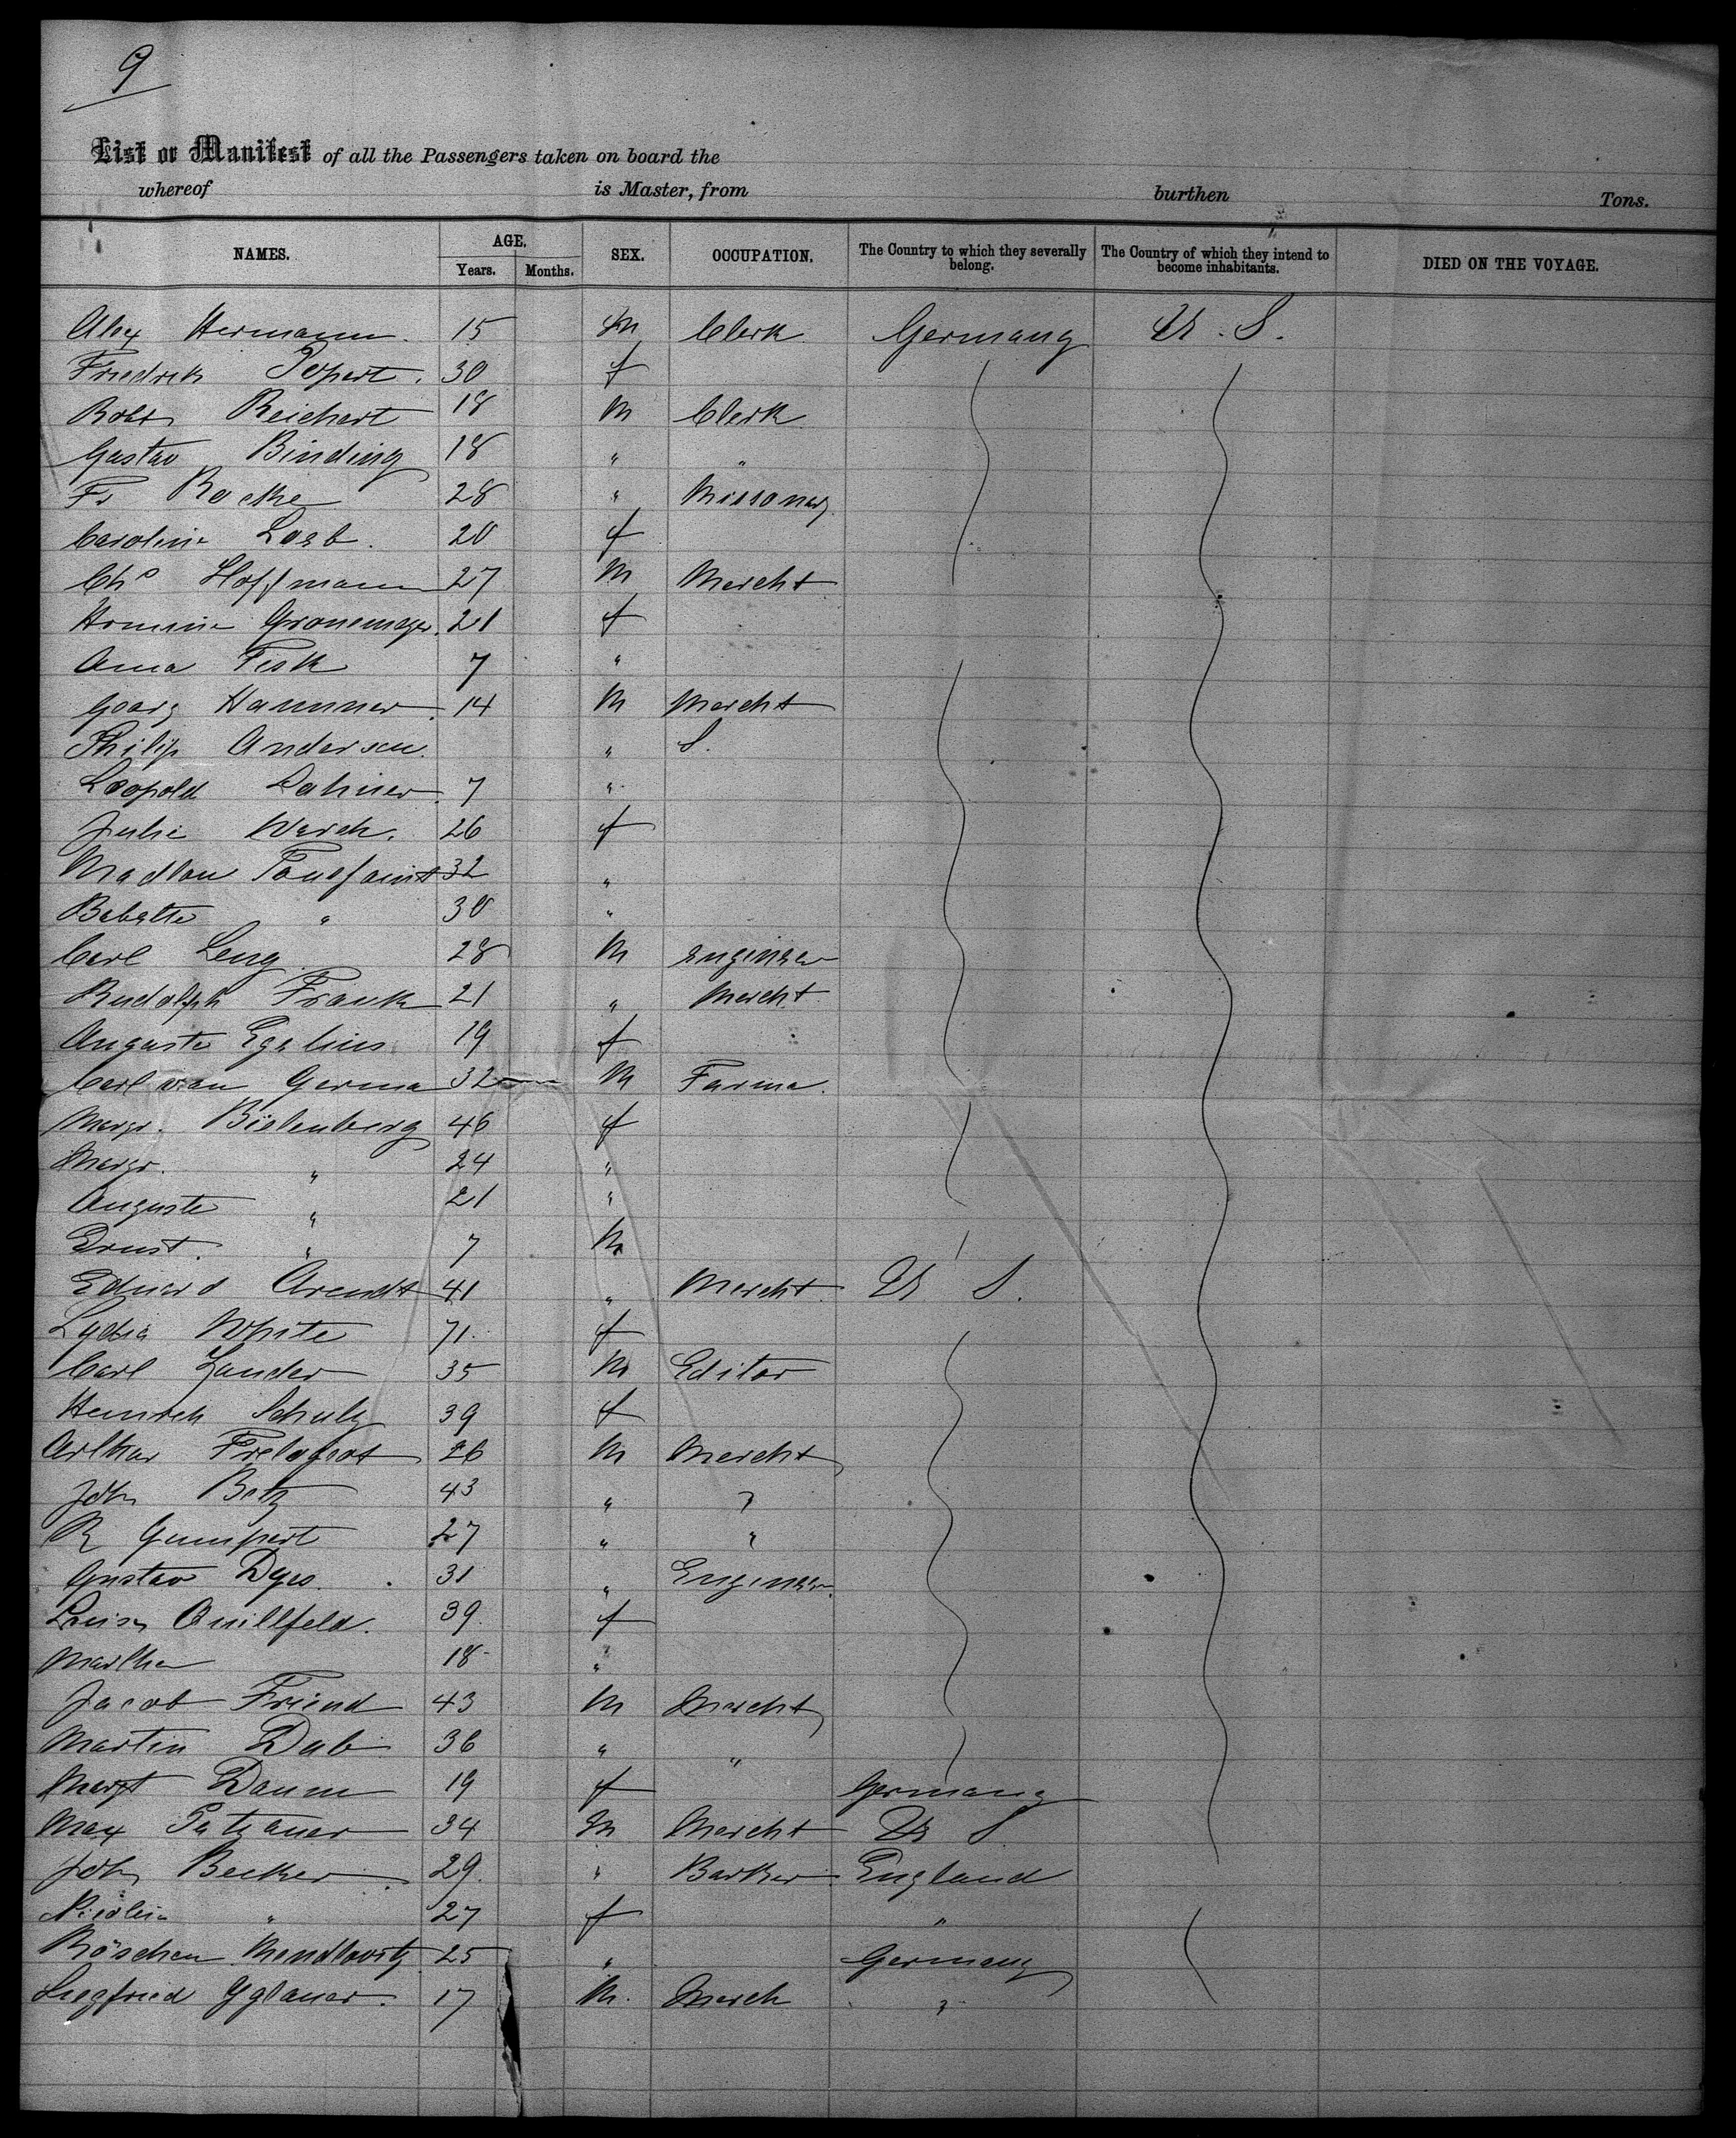 9
List or Manifest of all the Passengers taken on board the
whereof is Master, from burthen Tons.
NAMES. AGE. SEX. OCCUPATION. The Country to which they severally belong. The Country of which they intend to become inhabitants. DIED ON THE VOYAGE.
Years. Months.
Alex Hermann. 15 M Clerk Germany U. S.
Friedrich Popert. 30 f
Robt Reichert 18 M Clerk
Gustav Binding 18 " "
Fr Rocke 28 " Missonary
Caroline Loeb. 20 f
Chs Hoffmann 27 M Mercht
Gronemeyer. 21 f
Anna Fisk 7 "
Georg Hammer. 14 M Mercht
Philip Andersen. " S.
Leopold 7 "
Julie Werch. 26 f
32 "
Babette " 30 "
Carl Leng 28 M Engineer
Rudolph Frank 21 " Mercht
Auguste 19 f
Carl van Germa 32 M Farmer
Margr. Bielenberg 46 f
Margr. " 24 "
Auguste " 21 "
Ernst. " 7 M
Eduard Arendt 41 " Mercht U S.
Lydia White 71. f
Carl Zander 35 M Editor
Heinrich Schulz 39 f
Arthur 26 M Mercht
John Betz 43 " "
R Gumpert 27 " "
Gustav Dyes. 31 " Engineer
Louise Quillfeld. 39 f
Martha 18 "
Jacob Friend 43 M Mercht
Martin Dub 36 " "
Margt Daum 19 f Germany
Max Patzauer 34 M Mercht U S
John Becker 29. " England
" 27 f "
Röschen Mendlowitz 25 " Germany
Siegfried Yglauer. 17 M. Merch "